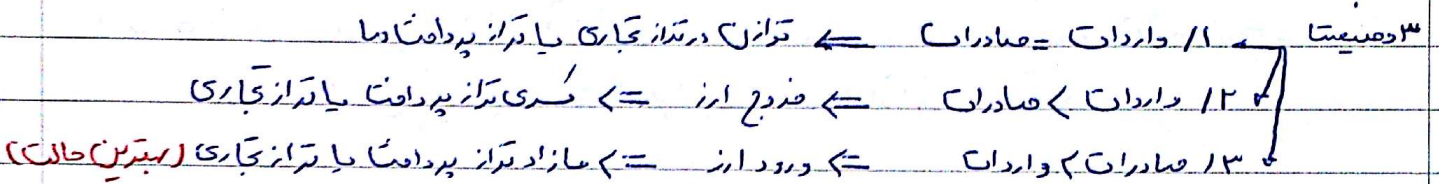 ۳ وضعیت
۱/ واردات = صادرات <= توازن در تراز تجاری یا تراز پرداخت‌ها
۲/ واردات > صادرات <= خروج ارز <= کسری تراز پرداخت یا تراز تجاری
۳/ صادرات > واردات <= ورود ارز <= مازاد تراز پرداخت یا تراز تجاری (بهترین حالت)